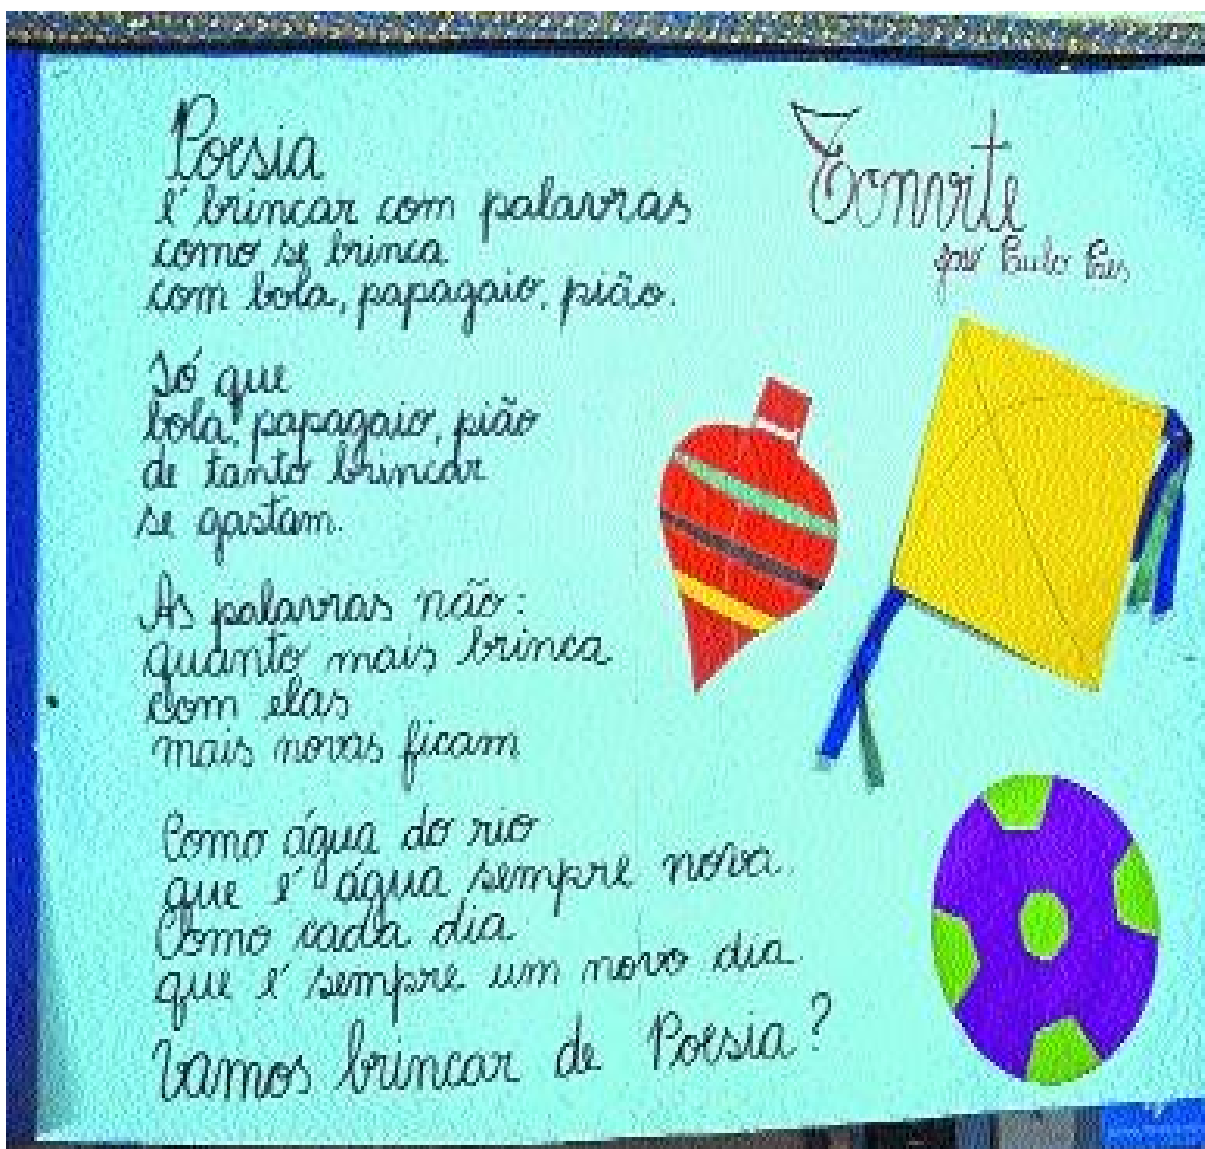 Convite
José Paulo Paes
Poesia
é brincar com palavras
como se brinca
com bola, papagaio, pião.
Só que
bola, papagaio, pião
de tanto brincar
se gastam.
As palavras não:
quanto mais brinca
com elas
mais novas ficam
Como água do rio
que é água sempre nova.
Como cada dia
que é sempre um novo dia.
Vamos brincar de Poesia?